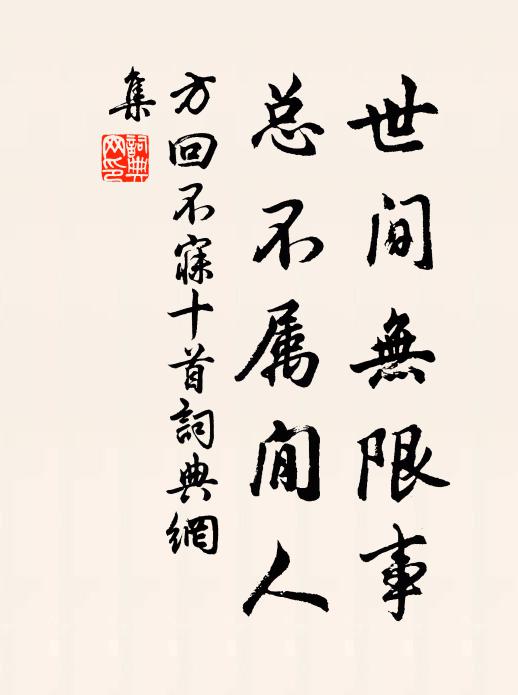 世间無限事
总不属闲人
方回不寐十首詞典網
集
詞典網印